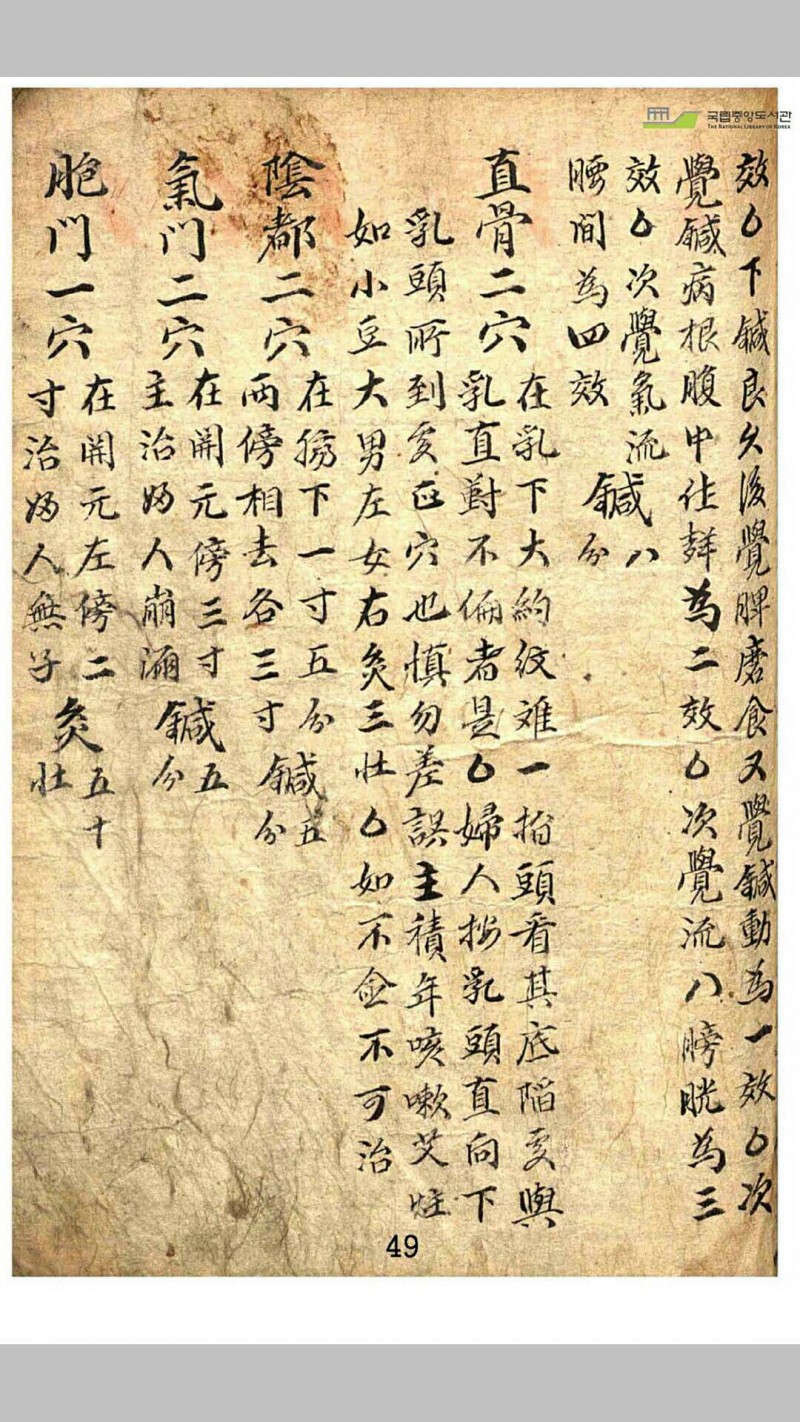 국립중앙도서관
THE NATIONAL LIBRARY OF KOREA
效○下鍼良久後覺脾磨食又覺鍼動為一效○次
覺鍼病根腹中作聲為二效○次覺流入膀胱為三
效○次覺氣流
腰間為四效
鍼八
分
直骨二穴
在乳下大約紋難一指頭看其底陷處與
乳直對不偏者是○婦人按乳頭直向下
乳頭所到处正穴也慎勿差誤主積年咳嗽艾炷
如小豆大男左女右灸三壯○如不愈不可治
陰都二穴
在臍下一寸五分
兩傍相去各三寸
鍼五
分
氣門二穴
在開元傍三寸
主治婦人崩漏
鍼五
分
胞門一穴
在開元左傍二
寸治婦人無子
灸五十
壯
49